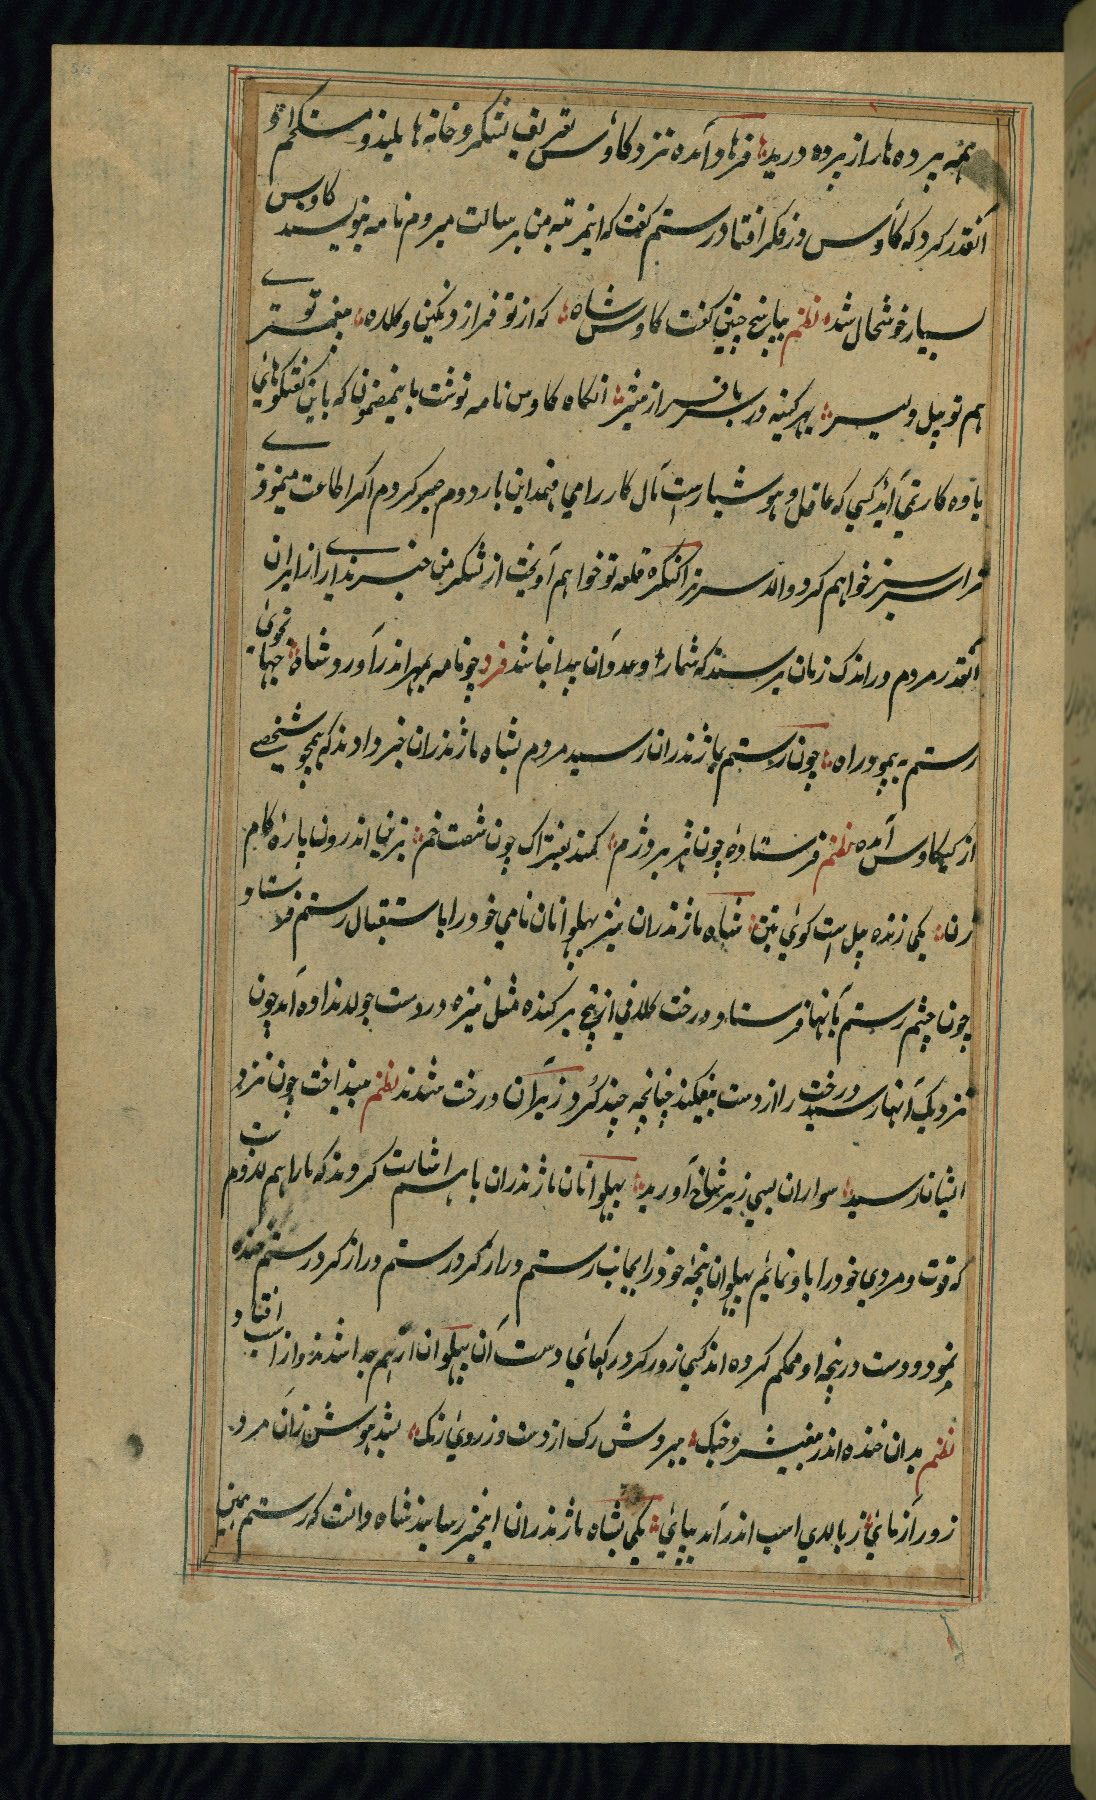 همه پرده ها را از پرده درید فرهاد آمده نزد کاوس تعریف لشکر و خانه ها بلند و مستحکم او
آنقدر کرد که کاوس در فکر افتاد رستم گفت که اینمرتبه من برسالت میروم نامه بنویسید کاوس
بسیار خوشحال شد نظم بپاسخ چنین گفت کاوس شاه که از تو فرازد نگین و کلاه پیغمبر توی
هم تو پیل دلیر بهر کینه در سرفراز منیر انگاه کاوس نامه نوشت باینمضمون که باین گفتگوهائی
یاوه کار نمی آید کسی که عاقل و هوشیارست مآل کار را می فهمد این بار دوم صبر کردم اگر اطاعت مینمودی
سرافراز خواهم کرد والا سرت را از کنگره قلعه تو خواهم آویخت از لشکر من خبر نداری از ایران
آنقدر مردم در اندک زمان برسند که شمار و عدد آن پیدا نباشد فرد چو نامه بمهر اندر آورد شاه جهانجوی
رستم به پیمود راه چون رستم بماژندران رسید مردم بشاه ماژندران خبر دادند که همچو شخصی
از کیکاوس آمده نظم فرستاده چون هژبر دژم کمند بفتراک چون شصت خم بزیر اندرون باره گام
زن یکی زنده پیل است گوئی بتن شاه ماژندران نیز پهلوانان نامی خود را باستقبال رستم فرستاد
چون چشم رستم بآنها فرستاد درخت کلانی از بیخ برکنده مثل نیزه در دست جولان داده آمد چون
نزدیک آنها رسید درخت را از دست بیفکند چنانچه چند کرد زیر آن درخت شدند نظم بینداخت چون نزد
ایشان رسید سواران بسی زیر شاخ آورید پهلوانان ماژندران باهم اشارت کردند که ما را هم لازم است
که قوت و مردی خود را باو نمائیم پهلوان پنجه خود را بجانب رستم دراز کرد رستم دراز کرد رستم خنده
نمود و دست در پنجه او محکم کرده اندکی زور کرد رگهای دست آن پهلوان از هم جدا شدند و از اسب افتاد
نظم بدان خنده اندر بیفشرد چنگ ببردش رگ از دست و ز روی رنگ بشد هوش زان مرد
زور آزمای ز بالای اسب اندر آمد بپای یکی بشاه ماژندران اینخبر رسانید شاه دانست که رستم همین